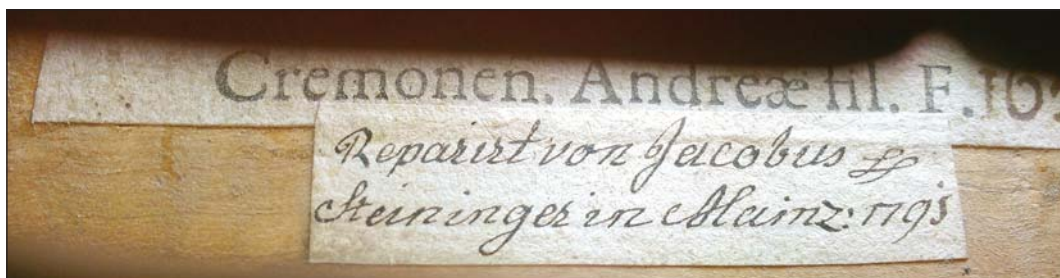 Cremonen. Andreæ fil. F. 16
Reparirt von Jacobus
Steininger in Mainz: 1795